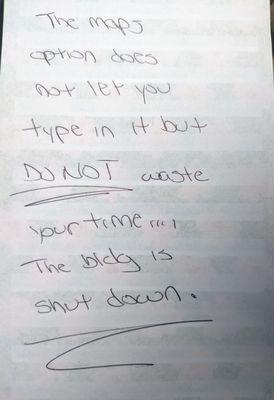 The maps
option does
not let you
type in it but
DO NOT waste
your time....
The bldg is
shut down.